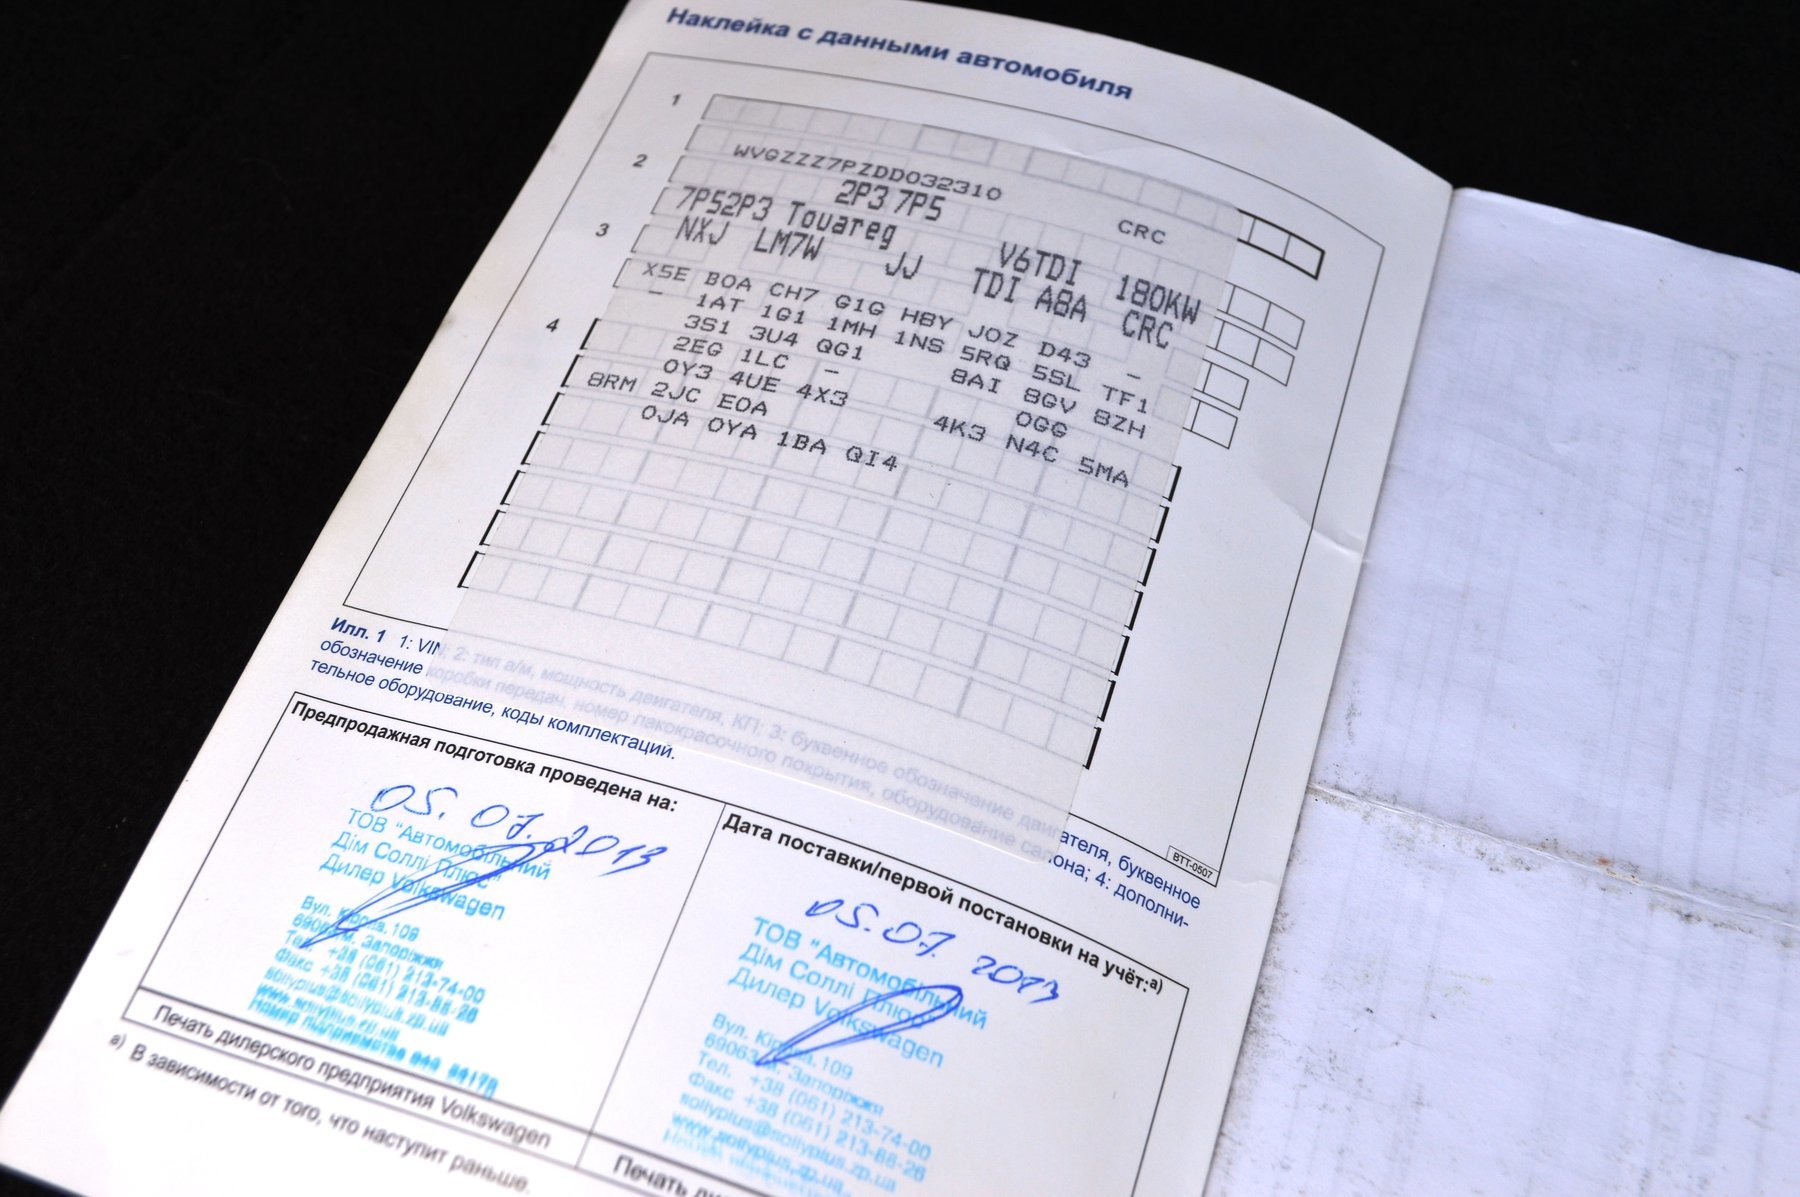 Наклейка с данными автомобиля
1
WVGZZZ7PZDD032310
2
2P3 7P5 CRC
7P52P3 Touareg V6TDI 180KW
3
NXJ LM7W JJ TDI A8A CRC
X5E B0A CH7 G1G H8Y J0Z D43 -
- 1AT 1G1 1MH 1NS 5RQ 5SL TF1
4
3S1 3U4 QG1 8AI 8GV 8ZH
2EG 1LC - 0GG
0Y3 4UE 4X3 4K3 N4C 5MA
8RM 2JC E0A
0JA 0YA 1BA QI4
Илл. 1 1: VIN: 2: тип а/м, мощность двигателя, КП; 3: буквенное обозначение двигателя, буквенное
обозначение коробки передач, номер лакокрасочного покрытия, оборудование салона; 4: дополни-
тельное оборудование, коды комплектаций.
BTT-0507
Предпродажная подготовка проведена на:
05.07.2013
ТОВ "Автомобільний
Дім Соллі Плюс"
Дилер Volkswagen
Вул. Кірова, 109
м. Запоріжжя
Тел. +38 (061) 213-74-00
Факс +38 (061) 213-88-26
sollyplus@sollyplus.zp.ua
www.sollyplus.zp.ua
Печать дилерского предприятия Volkswagen
Дата поставки/первой постановки на учёт:а)
05.07.2013
ТОВ "Автомобільний
Дім Соллі Плюс"
Дилер Volkswagen
Вул. Кірова, 109
69063, м. Запоріжжя
Тел. +38 (061) 213-74-00
Факс +38 (061) 213-88-26
sollyplus@sollyplus.zp.ua
www.sollyplus.zp.ua
Печать
а) В зависимости от того, что наступит раньше.